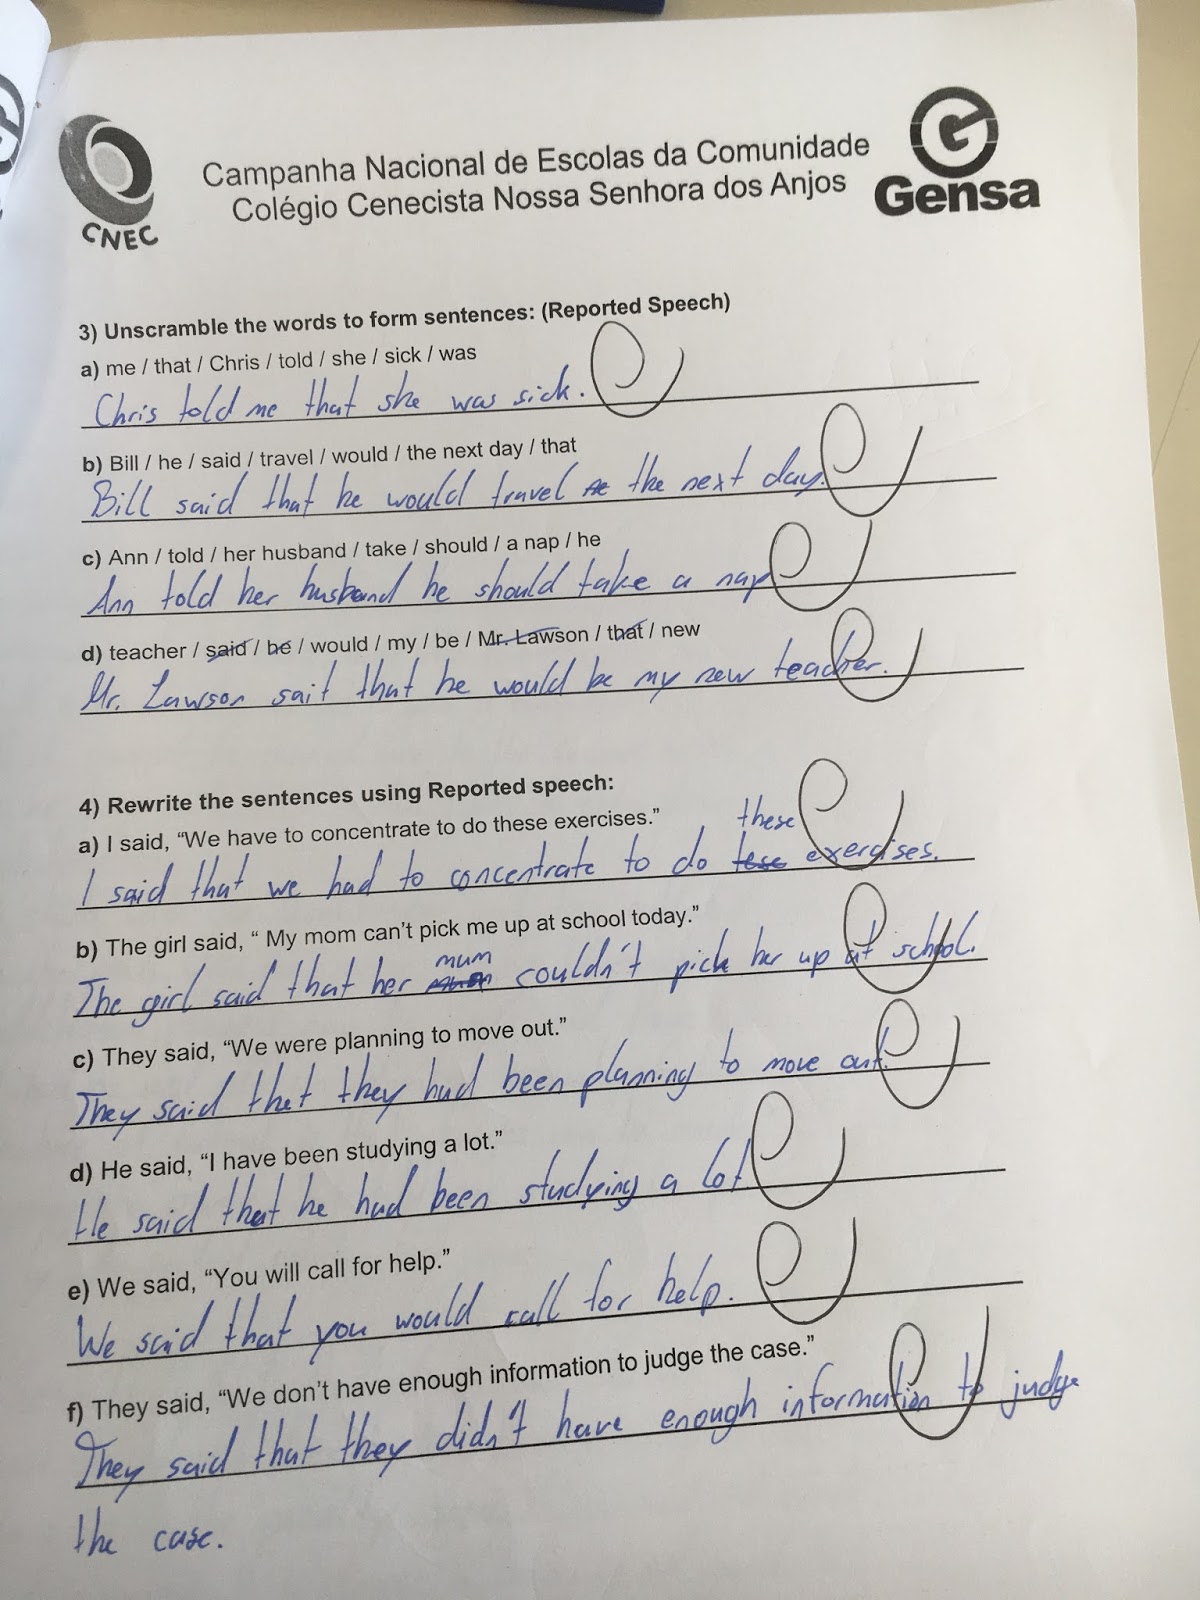 CNEC
Campanha Nacional de Escolas da Comunidade
Colégio Cenecista Nossa Senhora dos Anjos
Gensa
3) Unscramble the words to form sentences: (Reported Speech)
a) me / that / Chris / told / she / sick / was
Chris told me that she was sick.
b) Bill / he / said / travel / would / the next day / that
Bill said that he would travel the next day.
c) Ann / told / her husband / take / should / a nap / he
Ann told her husband he should take a nap
d) teacher / said / he / would / my / be / Mr. Lawson / that / new
Mr. Lawson sait that he would be my new teacher.
4) Rewrite the sentences using Reported speech:
a) I said, “We have to concentrate to do these exercises.”
these
I said that we had to concentrate to do tese exercises.
b) The girl said, “ My mom can’t pick me up at school today.”
mum
The girl said that her couldn't pick her up at school.
c) They said, “We were planning to move out.”
They said that they had been planning to move out.
d) He said, “I have been studying a lot.”
He said that he had been studying a lot.
e) We said, “You will call for help.”
We said that you would call for help.
f) They said, “We don’t have enough information to judge the case.”
They said that they didn't have enough information to judge
the case.